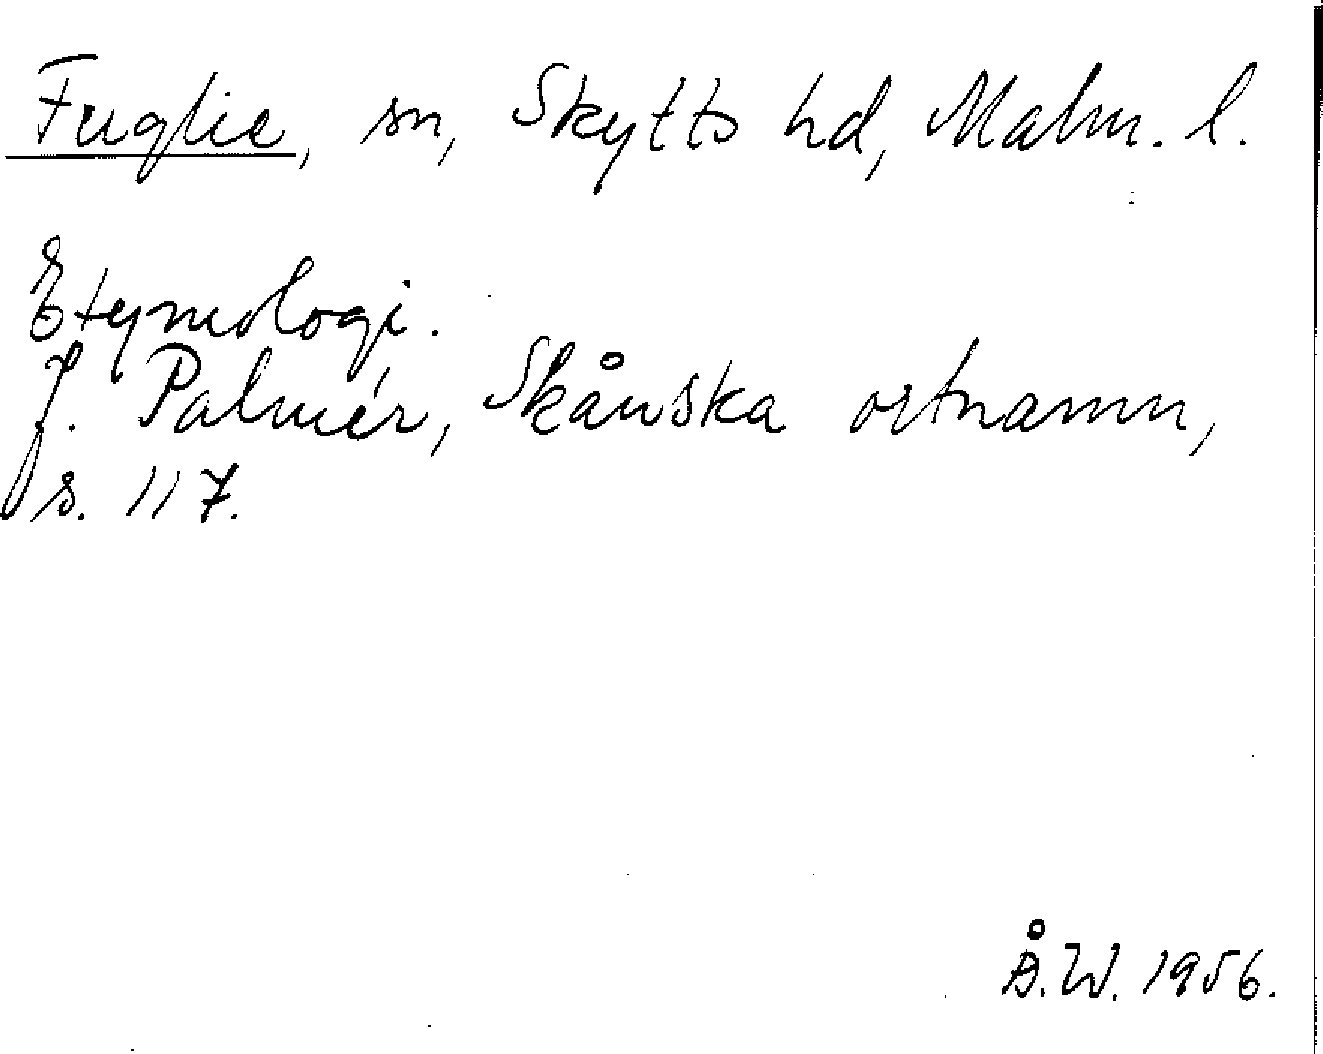 Fuglie, sn, Skytts hd, Malm. l.
Etymologi.
J. Palmér, Skånska ortnamn,
s. 117.
Å.W. 1956.